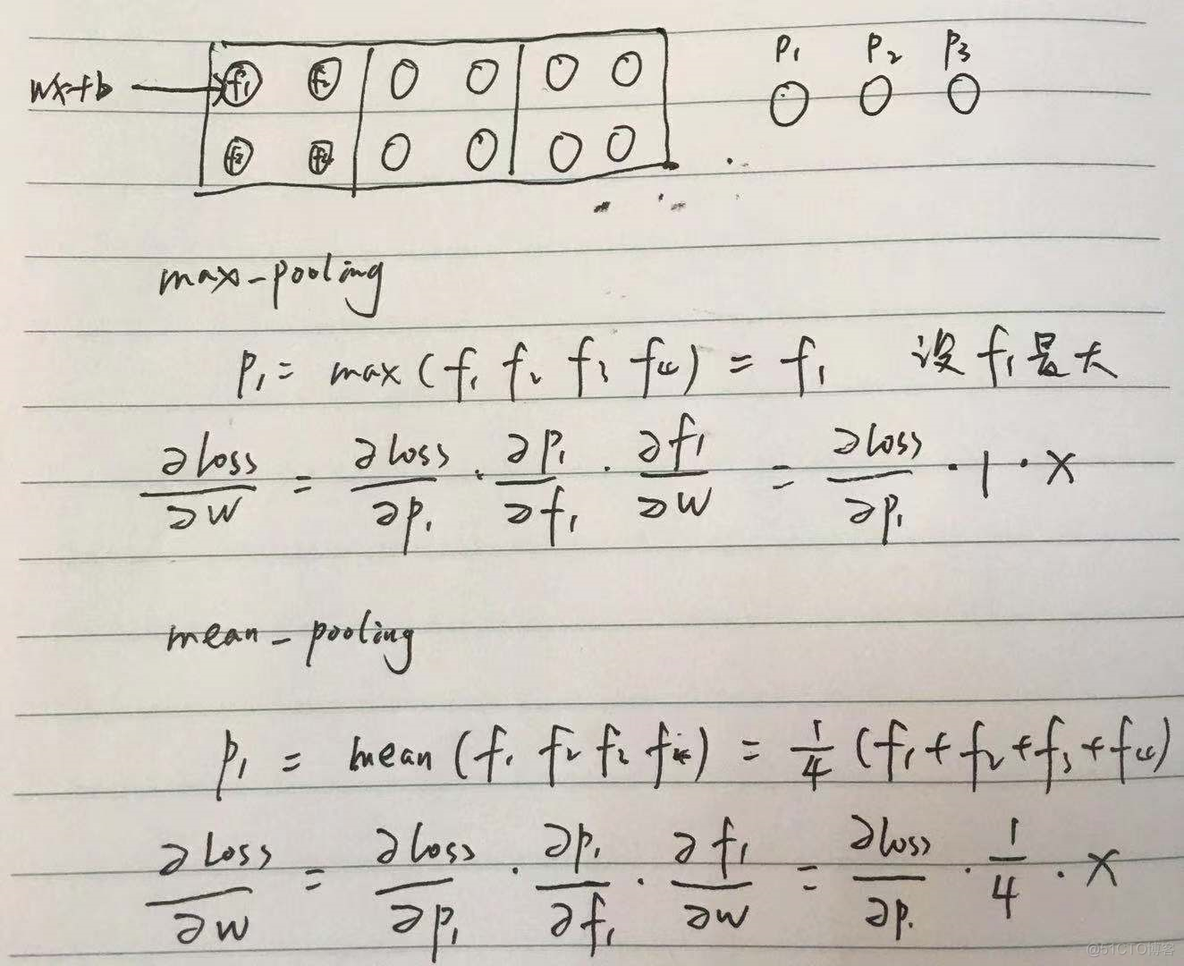 P₁ P₂ P₃
wx+b f₁ f₂
f₃ f₄
max-pooling
P₁ = max(f₁ f₂ f₃ f₄) = f₁ 设f₁最大
∂loss/∂w = ∂loss/∂p₁ · ∂p₁/∂f₁ · ∂f₁/∂w = ∂loss/∂p₁ · 1 · x
mean-pooling
P₁ = mean(f₁ f₂ f₂ f₄) = 1/4 (f₁+f₂+f₃+f₄)
∂loss/∂w = ∂loss/∂p₁ · ∂p₁/∂f₁ · ∂f₁/∂w = ∂loss/∂p₁ · 1/4 · x
@51CTO博客